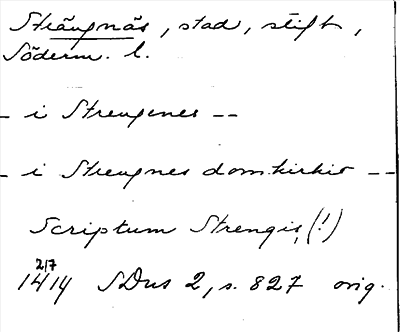 Strängnäs, stad, stift,
Söderm. l.
– i Strengenes --
– i Strengnes domkirkio --
Scriptum Strengis, (!)
2/7
1414 SDns 2, s. 827 orig.